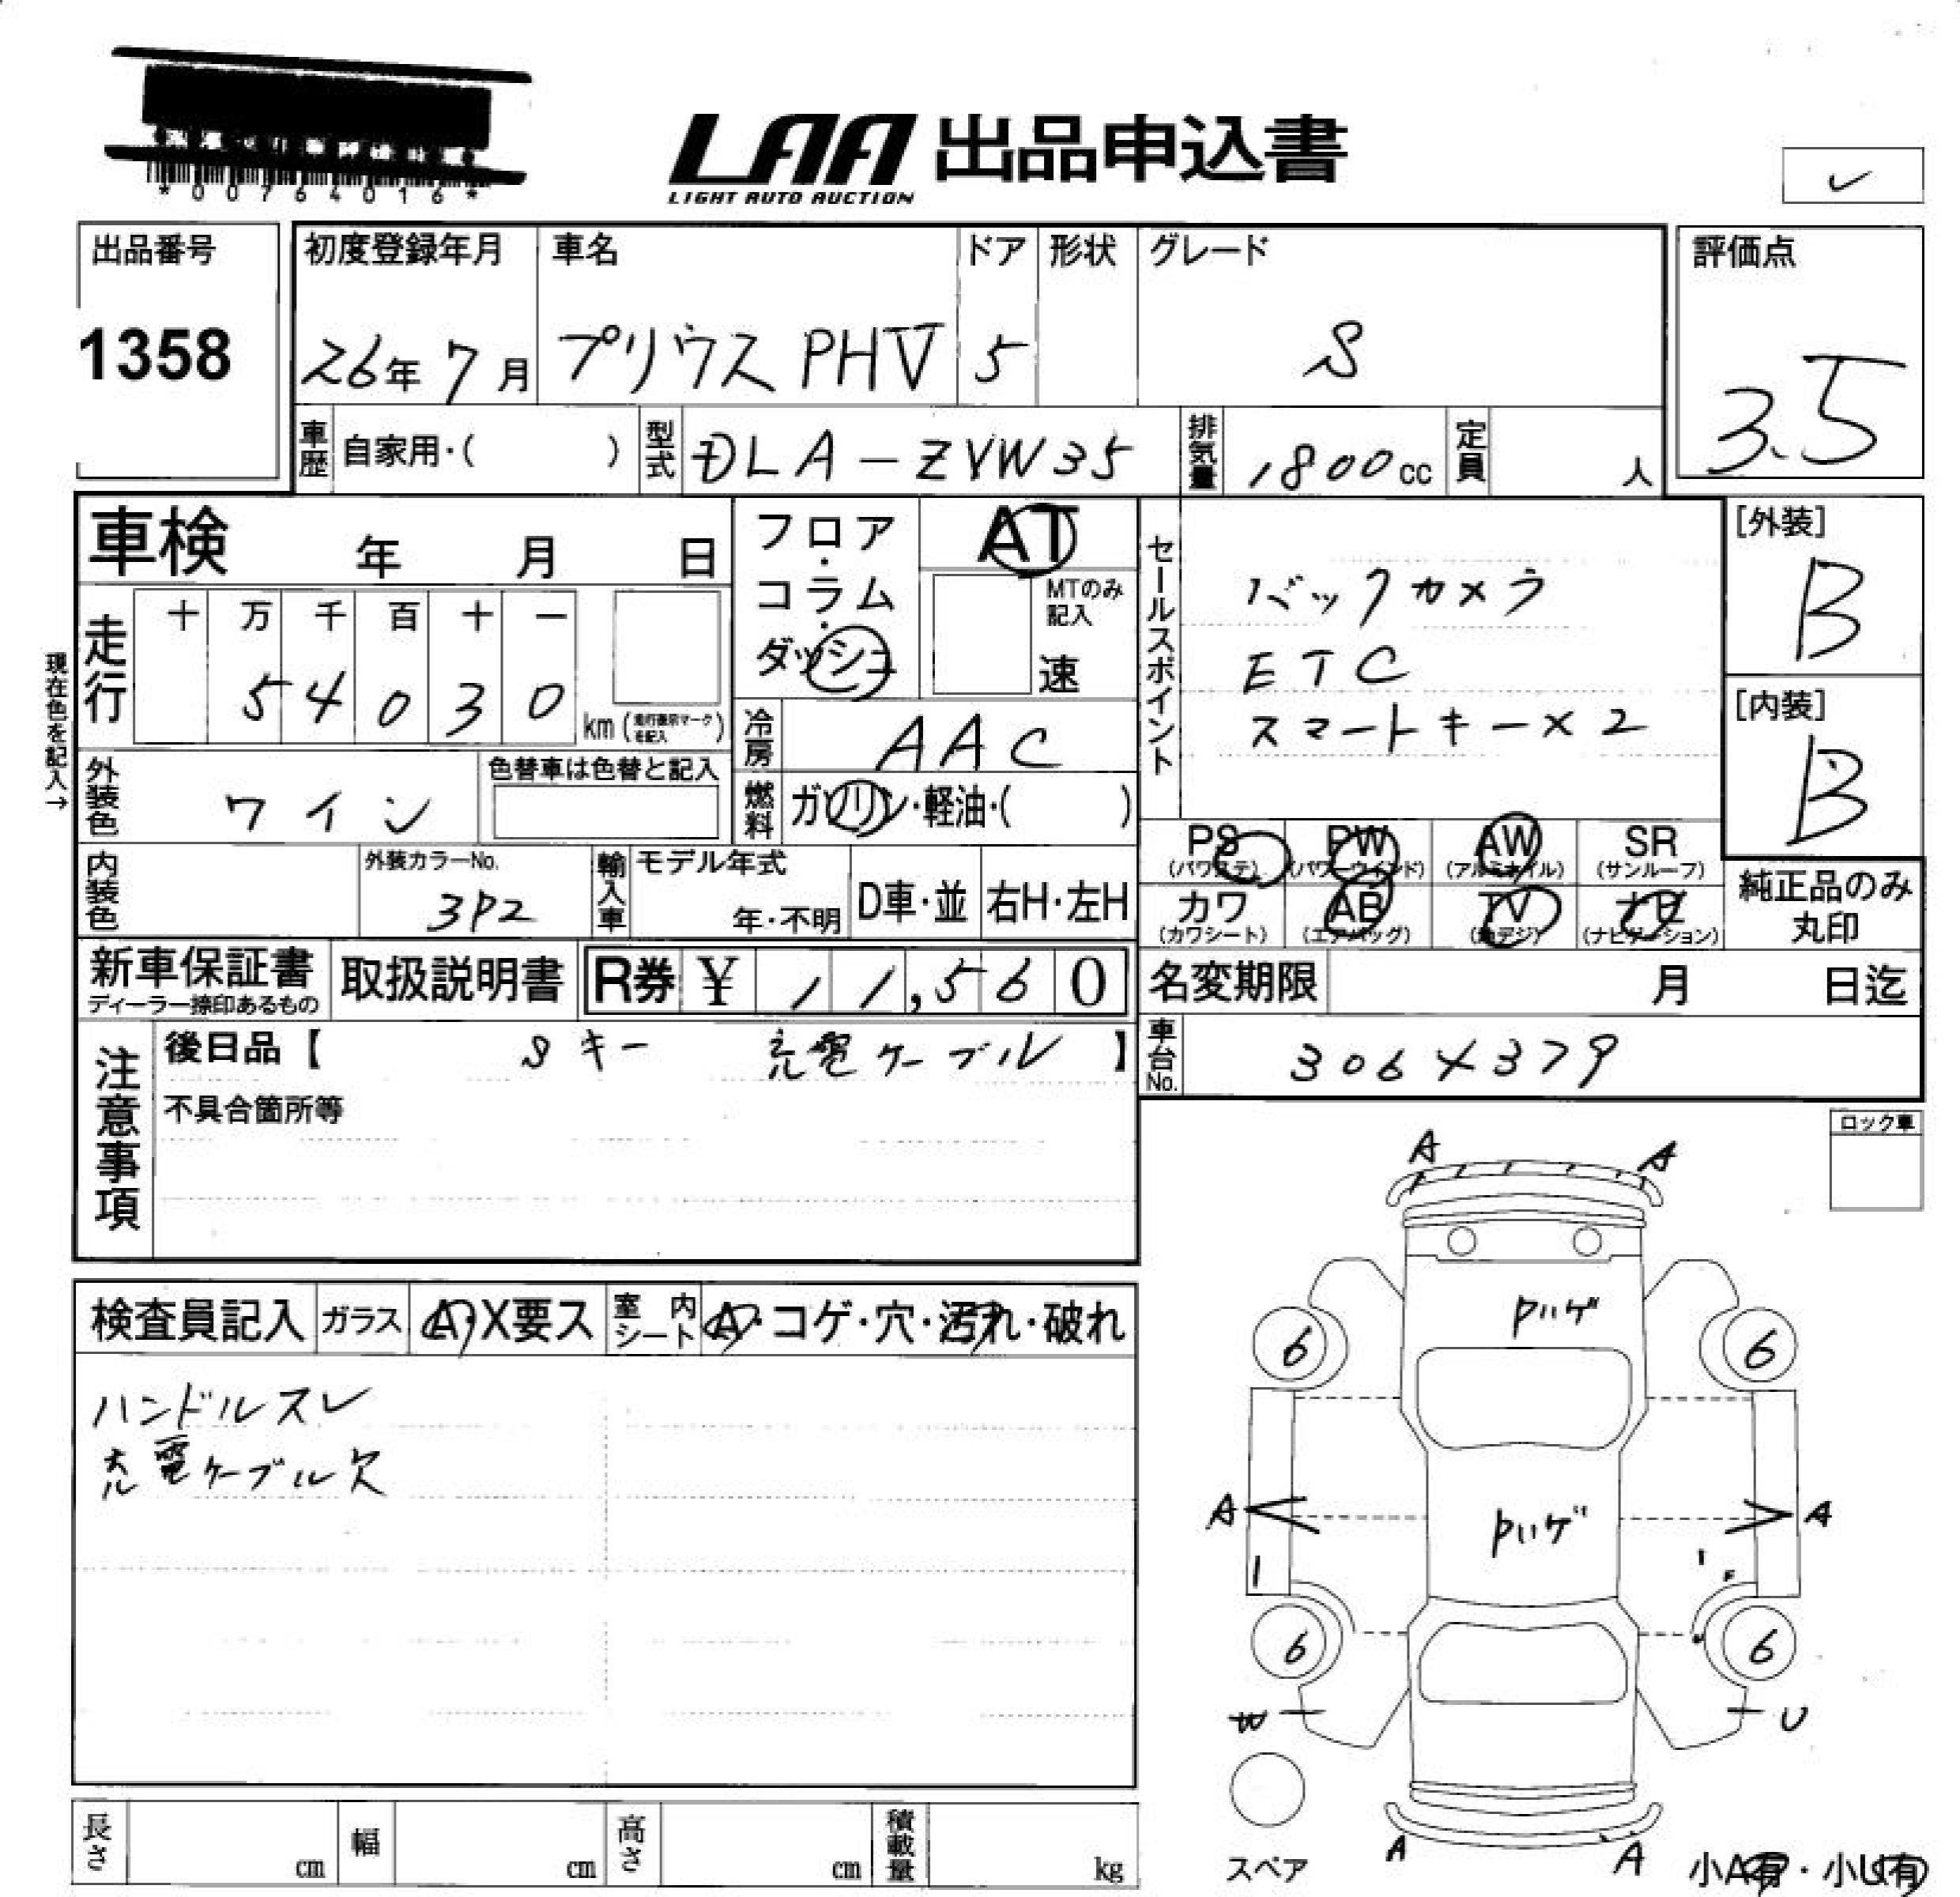 *00764016*
LAA 出品申込書
LIGHT AUTO AUCTION
出品番号 初度登録年月 車名 ドア 形状 グレード 評価点
1358 26年 7月 プリウス PHV 5 S 3.5
車歴 自家用・( ) 型式 DLA-ZVW35 排気量 1800cc 定員 人
車検 年 月 日
フロア・コラム・ダッシュ AT
MTのみ記入
速
現在色を記入→
走行 十 万 千 百 十 一
5 4 0 3 0 km (走行表示マークを記入)
セールスポイント
バックカメラ
ETC
スマートキー×2
[外装]
B
[内装]
B
冷房 AAC
外装色 ワイン 色替車は色替と記入
燃料 ガソリン・軽油・( )
内装色 外装カラーNo. 3P2
輸入車 モデル年式 年・不明 D車・並 右H・左H
PS (パワステ) PW (パワーウインド) AW (アルミホイル) SR (サンルーフ)
カワ (カワシート) AB (エアバッグ) TV (地デジ) ナビ (ナビゲーション)
純正品のみ丸印
新車保証書 ディーラー捺印あるもの 取扱説明書 R券 ¥ 11,560
名変期限 月 日迄
注意事項
後日品【 Sキー 充電ケーブル 】
不具合箇所等
車台No. 3064379
ロック車
検査員記入 ガラス A・X要ス 室内シート A・コゲ・穴・汚れ・破れ
ハンドルスレ
充電ケーブル欠
A A
Pハゲ
6 6
A Pハゲ A
6 6
W U
スペア
A A
小A有・小U有
長さ cm 幅 cm 高さ cm 積載量 kg